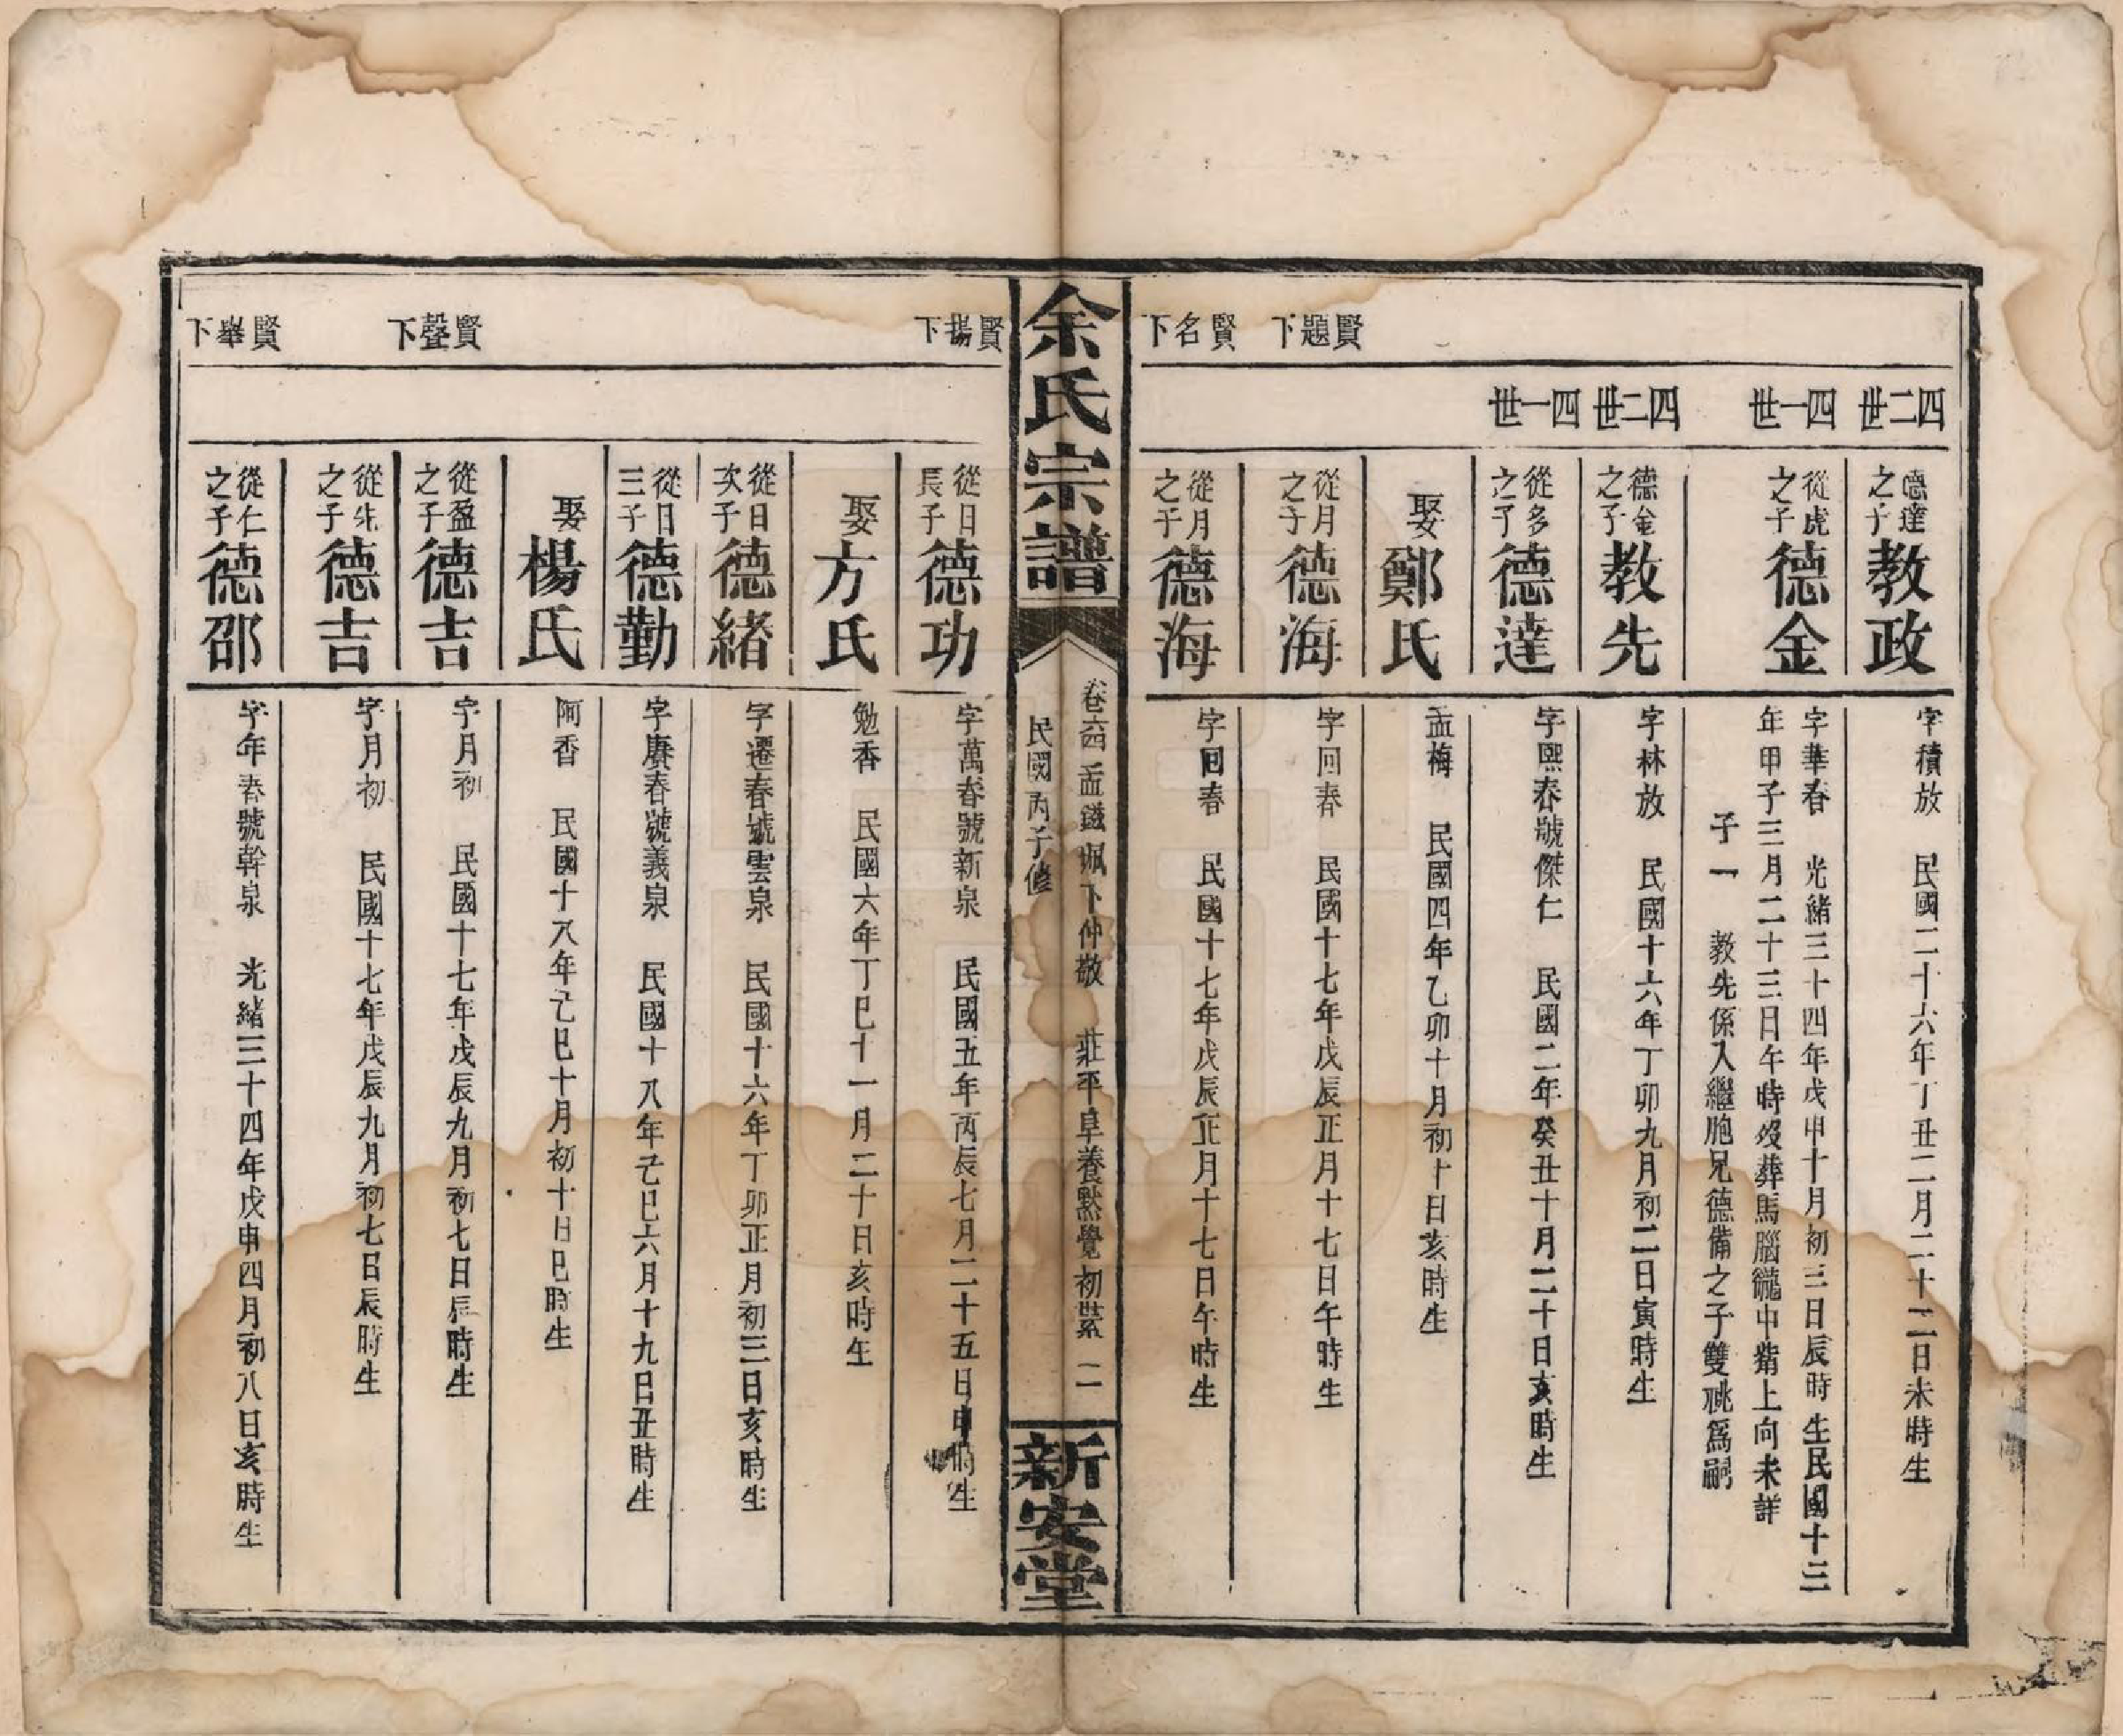 四二世
德達之子教政
字積放　民國二十六年丁丑二月二十二日未時生
四一世
從虎之子德金
字華春　光緒三十四年戊申十月初三日辰時生民國十三
年甲子三月二十三日午時歿葬馬腦巃中觜上向未詳
子一　教先係入繼胞兄德備之子雙祧為嗣
四二世
德金之子教先
字林放　民國十六年丁卯九月初二日寅時生
四一世
從多之子德達
字熙春號傑仁　民國二年癸丑十月二十日亥時生
娶鄭氏
孟梅　民國四年乙卯十月初十日亥時生
賢題下
從月之子德海
字回春　民國十七年戊辰正月十七日午時生
賢名下
從月之子德海
字回春　民國十七年戊辰正月十七日午時生
余氏宗譜
卷六四　孟璣珮下仲敬　莊平阜養默覺初藂　二
民國丙子修
新安堂
賢揚下
從日長子德功
字萬春號新泉　民國五年丙辰七月二十五日申時生
娶方氏
勉香　民國六年丁巳十一月二十日亥時生
從日次子德緒
字遷春號雲泉　民國十六年丁卯正月初三日亥時生
從日三子德勤
字賡春號義泉　民國十八年己巳六月十九日丑時生
娶楊氏
阿香　民國十八年己巳十月初十日巳時生
賢聲下
從盈之子德吉
字月初　民國十七年戊辰九月初七日辰時生
從先之子德吉
字月初　民國十七年戊辰九月初七日辰時生
賢舉下
從仁之子德邵
字年春號幹泉　光緒三十四年戊申四月初八日亥時生